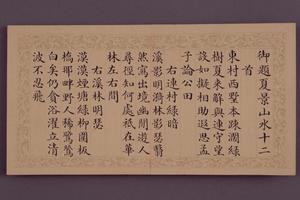 御題夏景山水十二
首
東村西墅本疎濶綠
樹夏来解與連守望
設如擬相助遐思孟
子論公田
右連村綠暗
溪影明漪林影瑟翳
然寫出境幽閒遊人
尋徑知何處祗在華
林左右間
右溪林明瑟
漠漠煙塘綠柳圍板
橋耶畔野人稀鷺鷥
白矣仍貪浴濯立清
波不忍飛